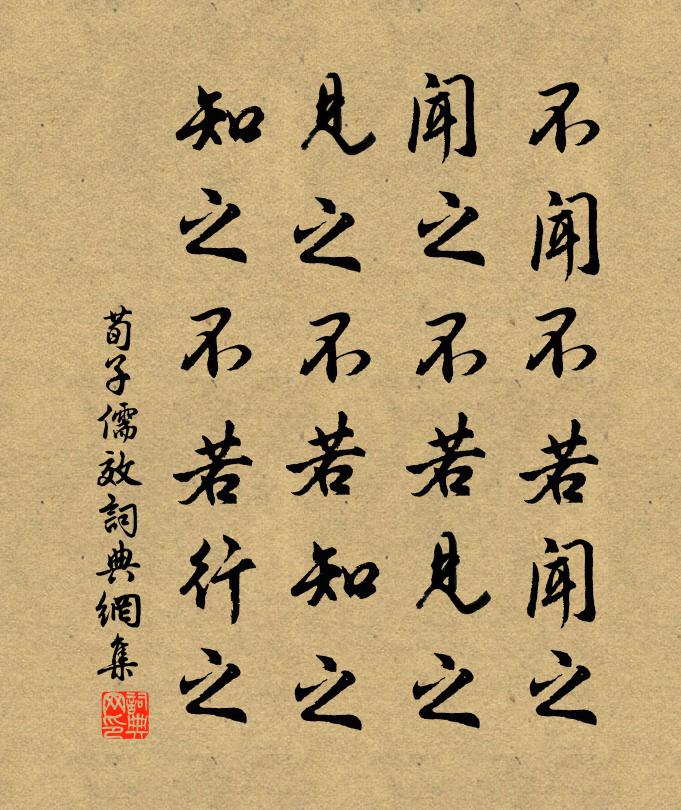 不聞不若聞之
聞之不若見之
見之不若知之
知之不若行之
荀子儒效詞典網集
詞典網印